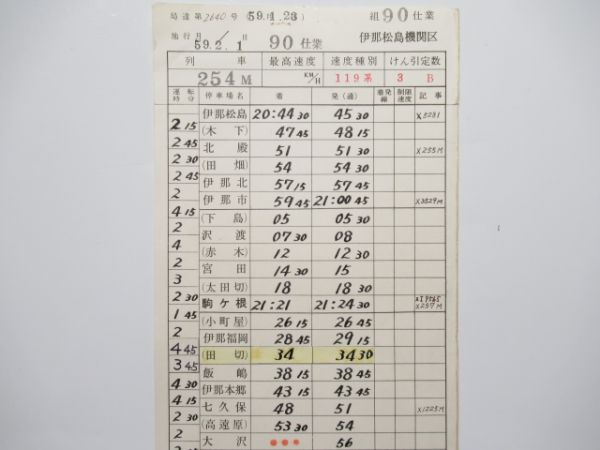 局達第2640号 (59.1.28) 組90仕業
施行 月 日 59.2.1 90仕業 伊那松島機関区
列 車 最高速度 速度種別 けん引定数
254M KM/H 119系 3 B
運転時分 停車場名 着 発(通) 着発線 制限速度 記事
伊那松島 20:44 30 45 30
2 15 (木 下) 47 45 48 15
2 45 北 殿 51 51 30 ×255M
2 30 (田 畑) 54 54 30
2 45 伊那北 57 15 57 45
2 伊那市 59 45 21:00 45
4 15 (下 島) 05 05 30
2 沢 渡 07 30 08
4 (赤 木) 12 12 30
2 宮 田 14 30 15
3 (太田切) 18 18 30
2 30 駒ケ根 21:21 21:24 30 ×257M
1 45 (小町屋) 26 15 26 45
2 伊那福岡 28 45 29 15
4 45 (田 切) 34 34 30
3 45 飯 嶋 38 15 38 45
4 30 伊那本郷 43 15 43 45
4 15 七久保 48 51 ×1225M
2 30 (高遠原) 53 30 54
2 大 沢 ●●● 56